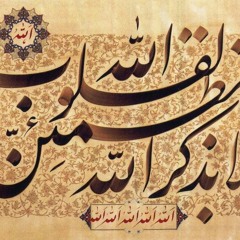 الله
الله
بذكر الله تطمئن القلوب
الله الله الله الله الله